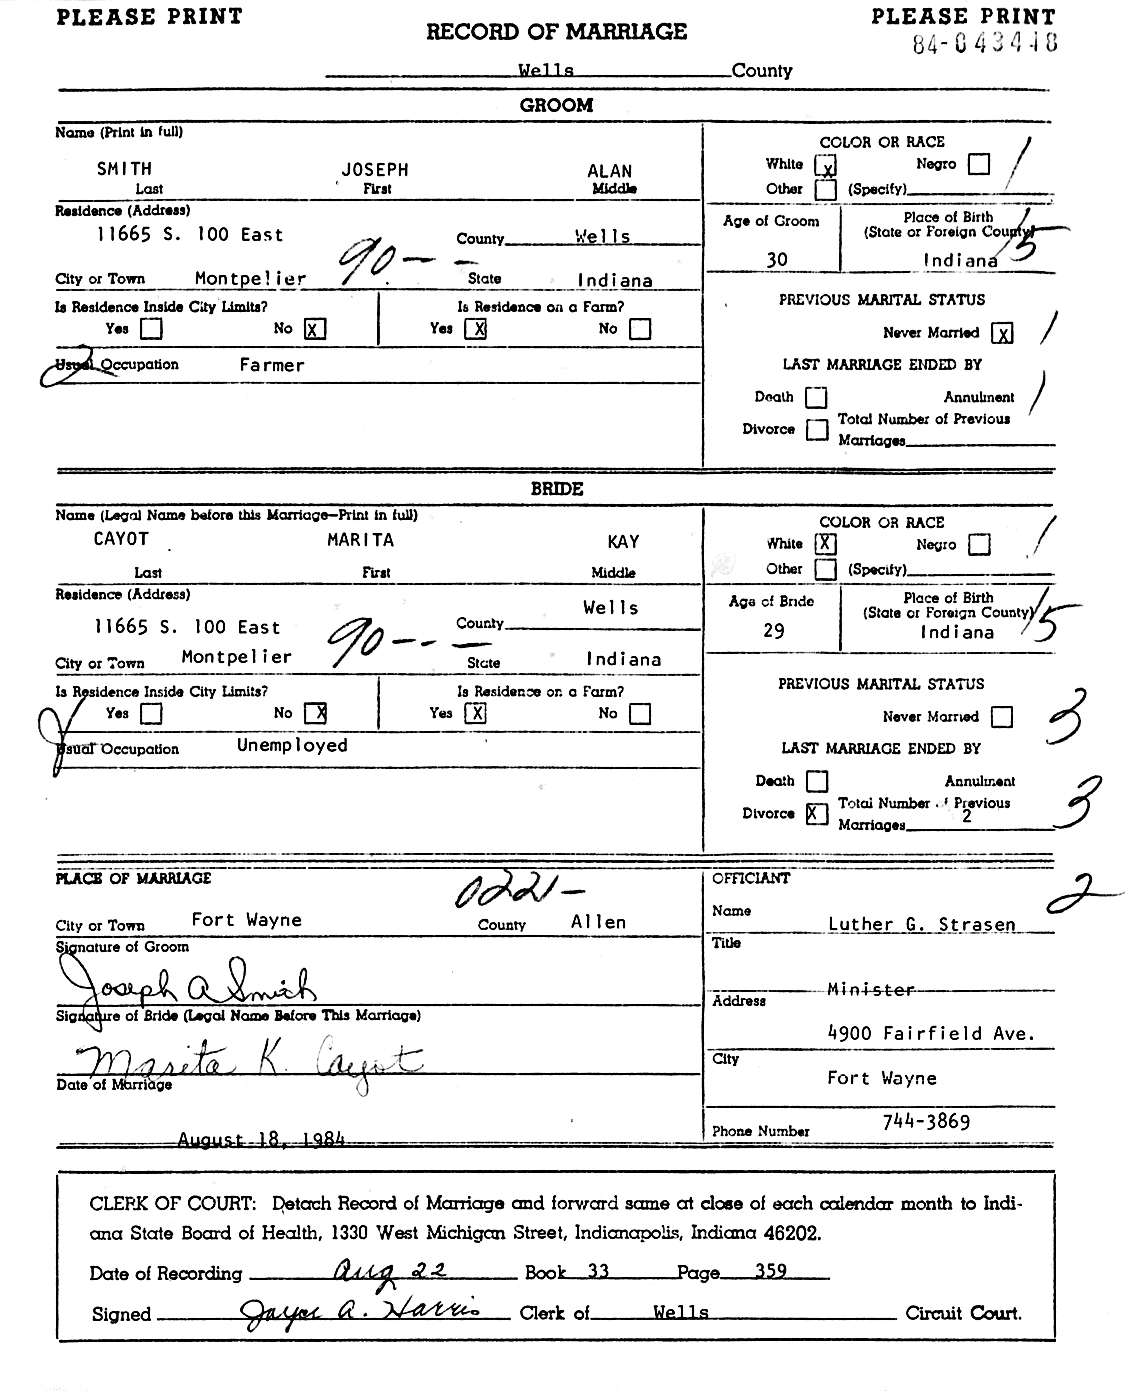 PLEASE PRINT PLEASE PRINT
RECORD OF MARRIAGE
84-043448
Wells County
GROOM
Name (Print in full)
COLOR OR RACE
SMITH JOSEPH ALAN
Last First Middle
White X Negro /
Other (Specify)
Residence (Address)
11665 S. 100 East County Wells
City or Town Montpelier 90-- - State Indiana
Age of Groom 30
Place of Birth
(State or Foreign County)
Indiana 15
Is Residence Inside City Limits? Is Residence on a Farm?
Yes No X Yes X No
PREVIOUS MARITAL STATUS
Never Married X /
Usual Occupation Farmer
2
LAST MARRIAGE ENDED BY
Death Annulment /
Divorce Total Number of Previous
Marriages
BRIDE
Name (Legal Name before this Marriage-Print in full)
COLOR OR RACE
CAYOT MARITA KAY
Last First Middle
White X Negro /
Other (Specify)
Residence (Address)
11665 S. 100 East County Wells
City or Town Montpelier 90-- - State Indiana
Age of Bride 29
Place of Birth
(State or Foreign County)
Indiana 15
Is Residence Inside City Limits? Is Residence on a Farm?
Yes No X Yes X No
PREVIOUS MARITAL STATUS
Never Married 3
Usual Occupation Unemployed
LAST MARRIAGE ENDED BY
Death Annulment
Divorce X Total Number of Previous
Marriages 2 3
PLACE OF MARRIAGE
City or Town Fort Wayne 0221- County Allen
Signature of Groom
Joseph A Smith
Signature of Bride (Legal Name Before This Marriage)
Marita K. Cayot
Date of Marriage
August 18, 1984
OFFICIANT 2
Name
Luther G. Strasen
Title
Minister
Address
4900 Fairfield Ave.
City
Fort Wayne
Phone Number 744-3869
CLERK OF COURT: Detach Record of Marriage and forward same at close of each calendar month to Indi-
ana State Board of Health, 1330 West Michigan Street, Indianapolis, Indiana 46202.
Date of Recording Aug 22 Book 33 Page 359
Signed A. Harris Clerk of Wells Circuit Court.